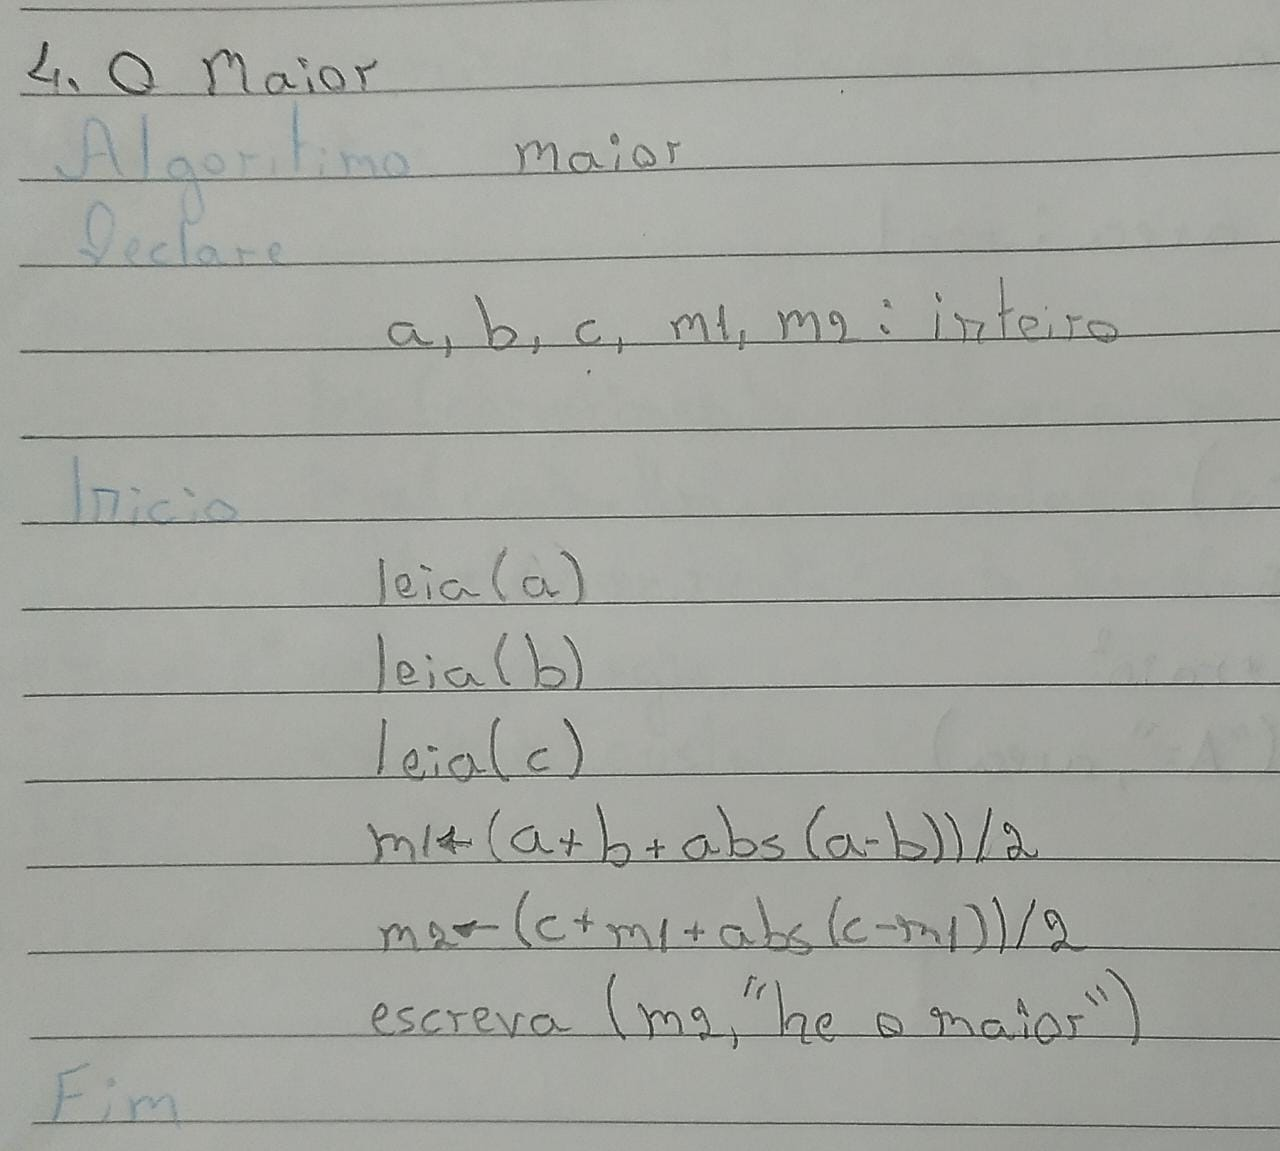 4. O Maior
Algoritimo maior
Declare
a, b, c, m1, m2 : inteiro
Inicio
leia(a)
leia(b)
leia(c)
m1← (a+b+abs(a-b))/2
m2← (c+m1+abs(c-m1))/2
escreva (m2, "he o maior")
Fim